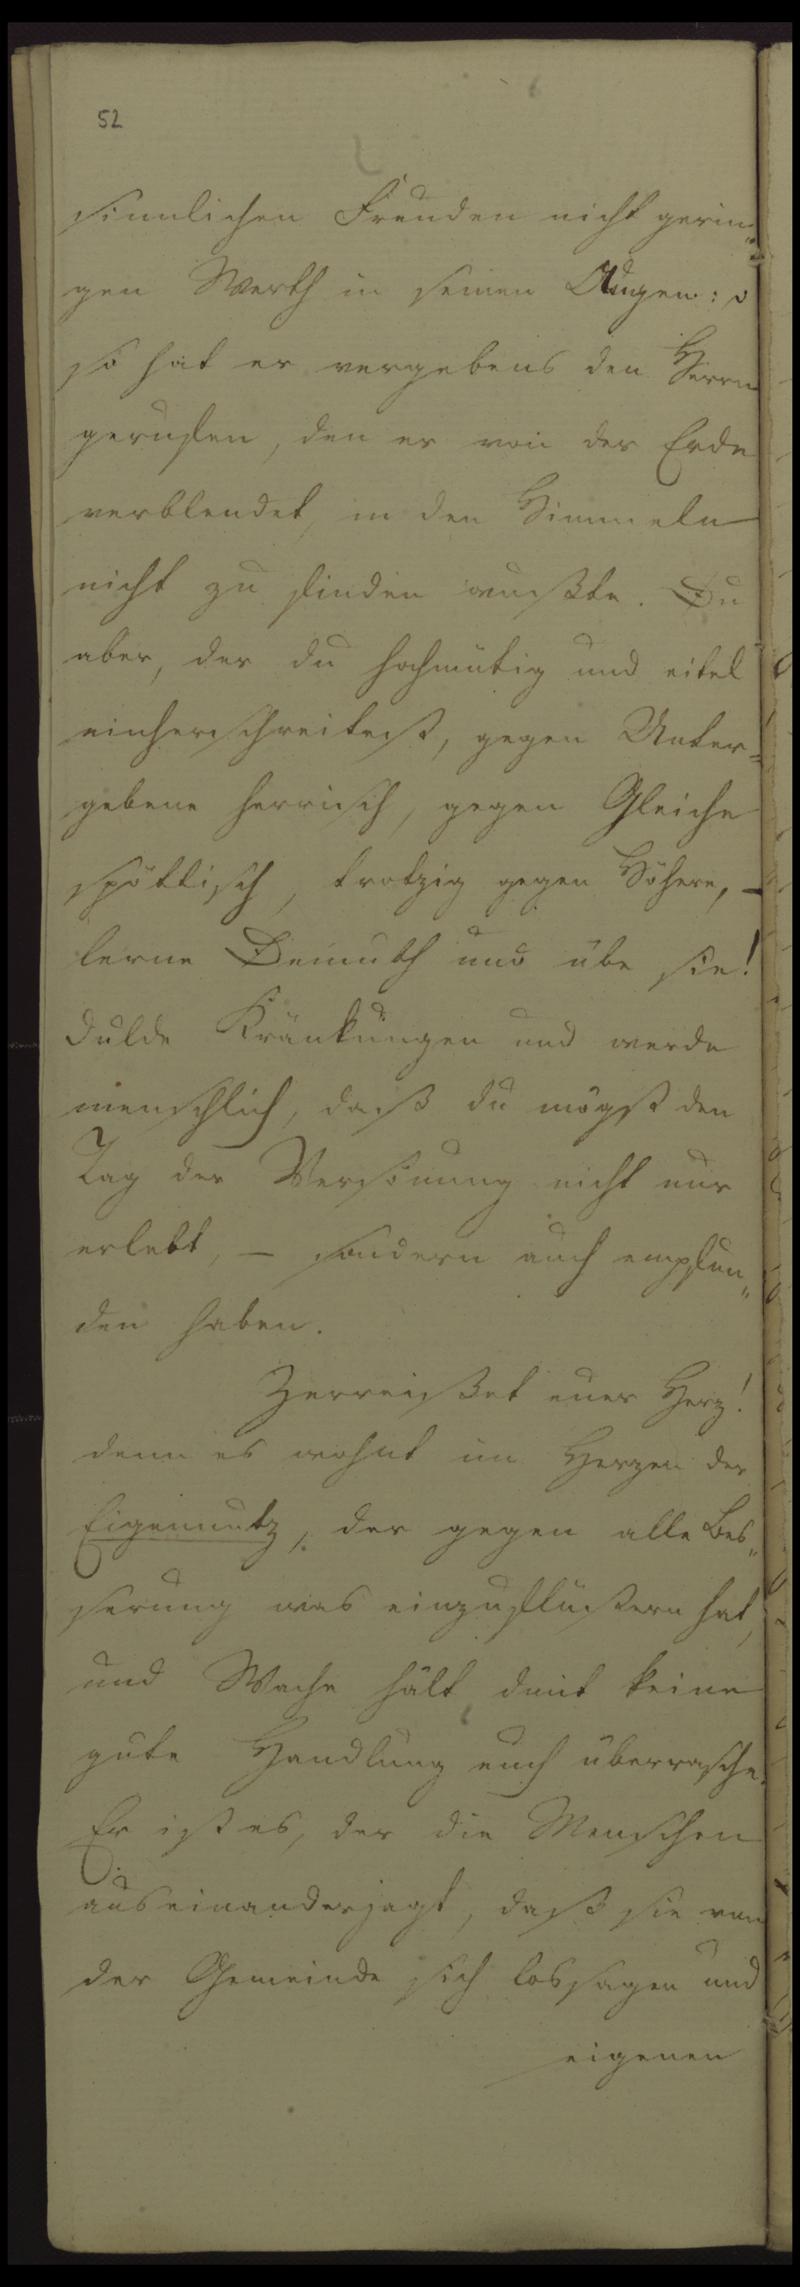 52
sinnlichen Freuden nicht gerin„
gen Werth in seinen Augen: o
so hat er vergebens den Herrn
gerufen, den er von der Erde
verblendet, in den Himmeln
nicht zu finden wußte. Du
aber, der du hochmütig und eitel
einherschreitest, gegen Unter=
gebene herrisch, gegen Gleiche
spöttisch, trotzig gegen Höhere, –
lerne Demuth und übe sie!
dulde Kränkungen und werde
menschlich, daß du mögst den
Tag der Versönung nicht nur
erlebt, – sondern auch empfun„
den haben.
Zerreißet euer Herz!
denn es wohnt im Herzen der
Eigennutz, der gegen alle Bes„
serung was einzuflüstern hat,
und Wache hält damit keine
gute Handlung euch überrasche.
Er ist es, der die Menschen
auseinanderjagt, daß sie von
der Gemeinde sich lossagen und
eigenen